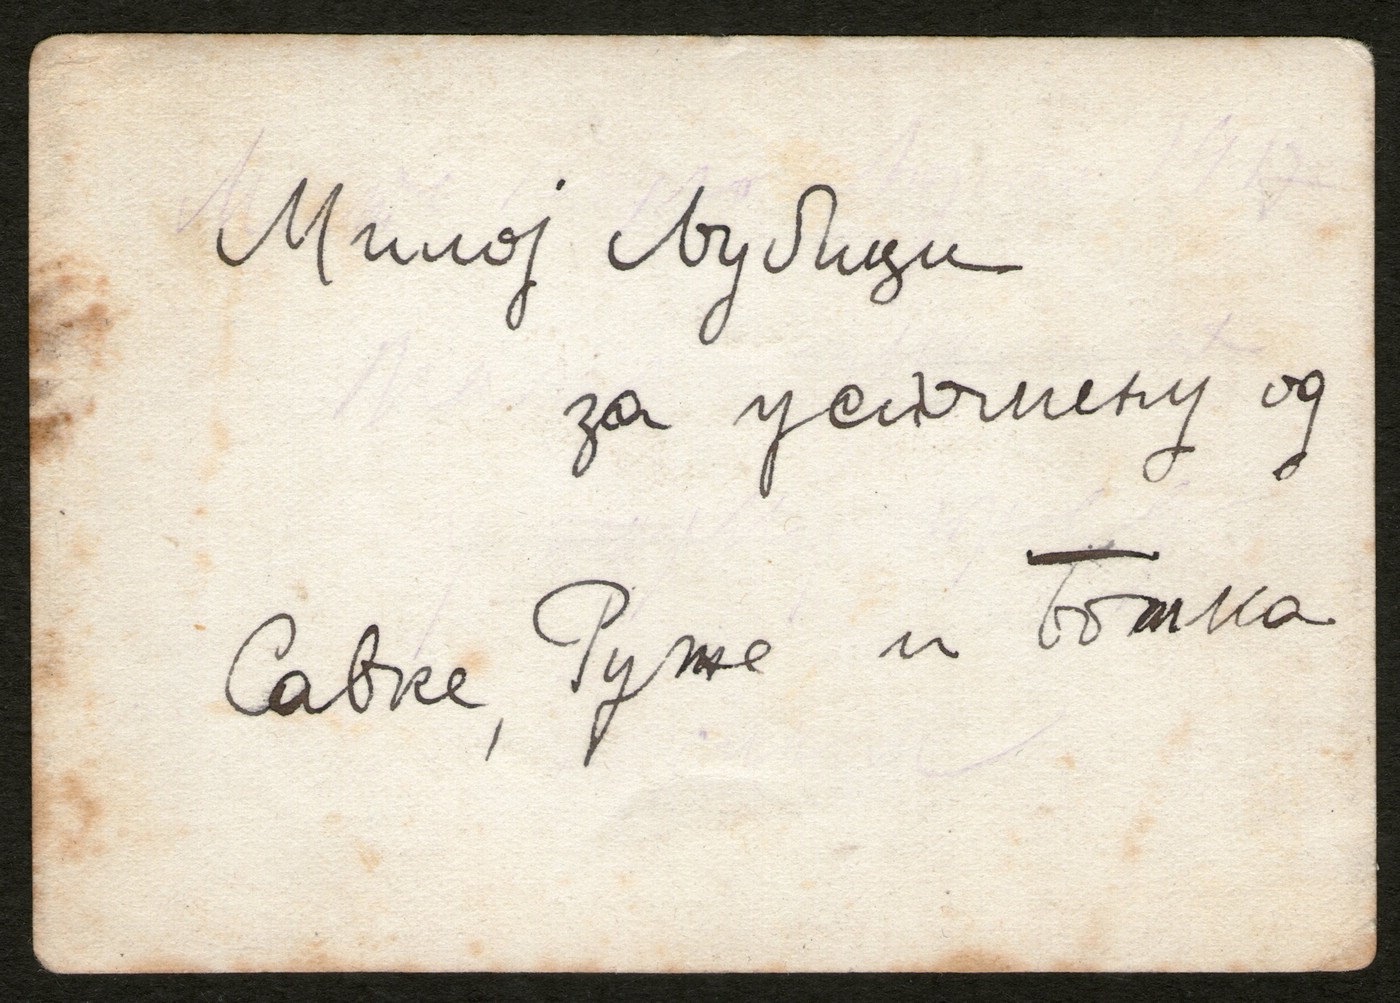 Милој Љубици
за успомену од
Савке, Руже и Бошка